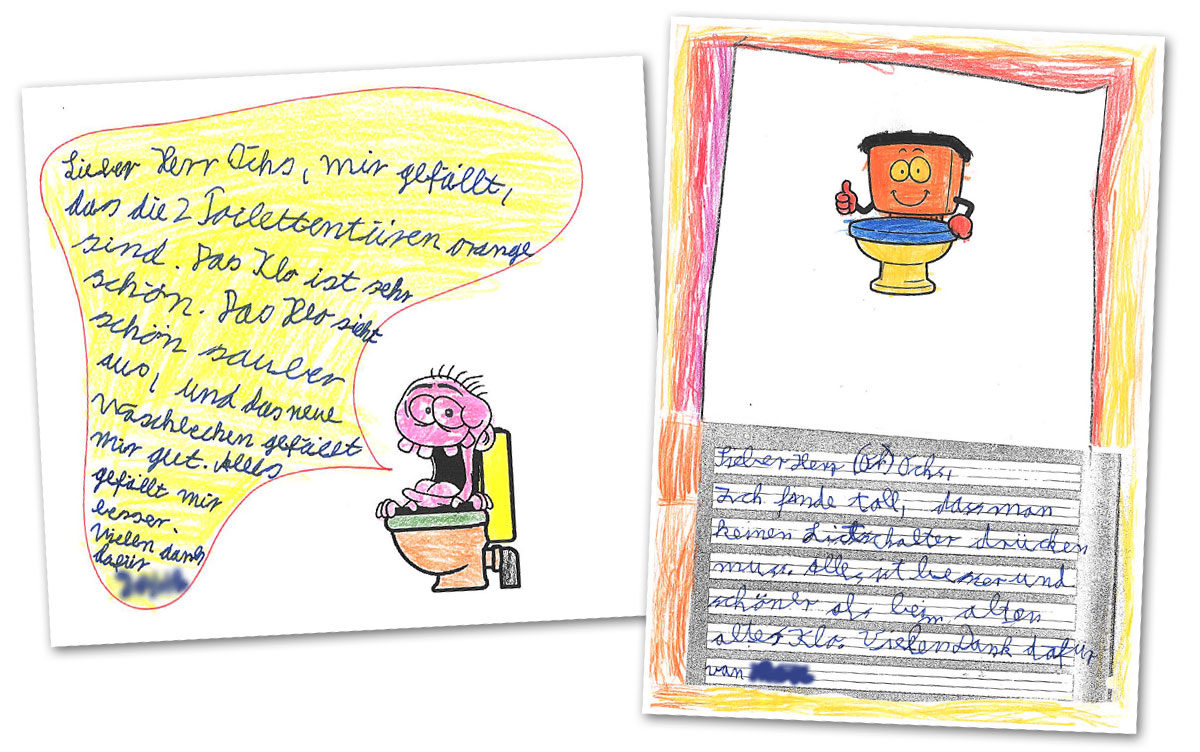 Lieber Herr Ochs, mir gefällt,
das die 2 Toilettentüren orange
sind. Das Klo ist sehr
schön. Das Klo sieht
schön sauber
aus, und das neue
Waschbecken gefällt
mir gut. Alles
gefällt mir
besser.
Vielen dank
dafür
Lieber Herr (Oh) Ochs,
Ich fande toll, dass man
keinen Lichtschalter drücken
muss. Alles ist besser und
schöner als beim alten
altes Klo. Vielen Dank dafür
van